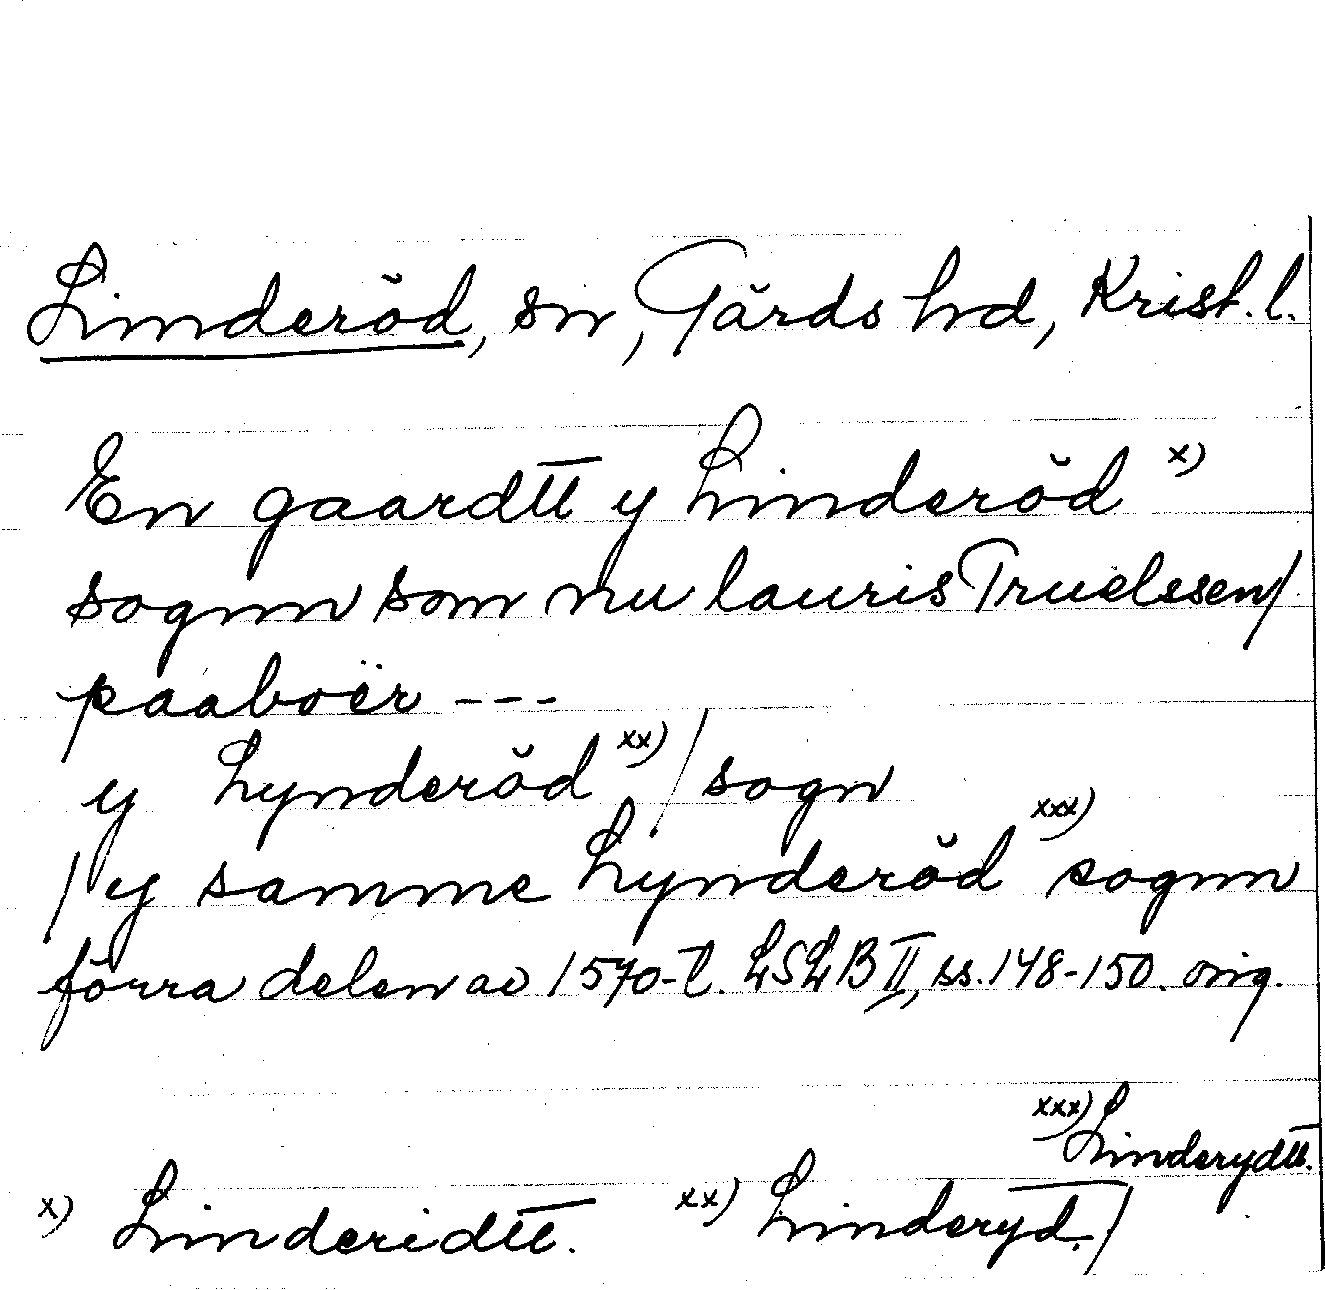 Linderöd, sn, Gärds hd, Krist. l.
En gaardtt y Linderöd x)
sognn som nu lauris Truelssen/
paaboër ---
y Lynderöd xx) / sogn
/ y samme Lynderöd xxx) sognn
förra delen av 1570-t. LSLB II, ss. 148-150. orig.
xxx) Linderydtt.
x) Linderidtt. xx) Linderyd./